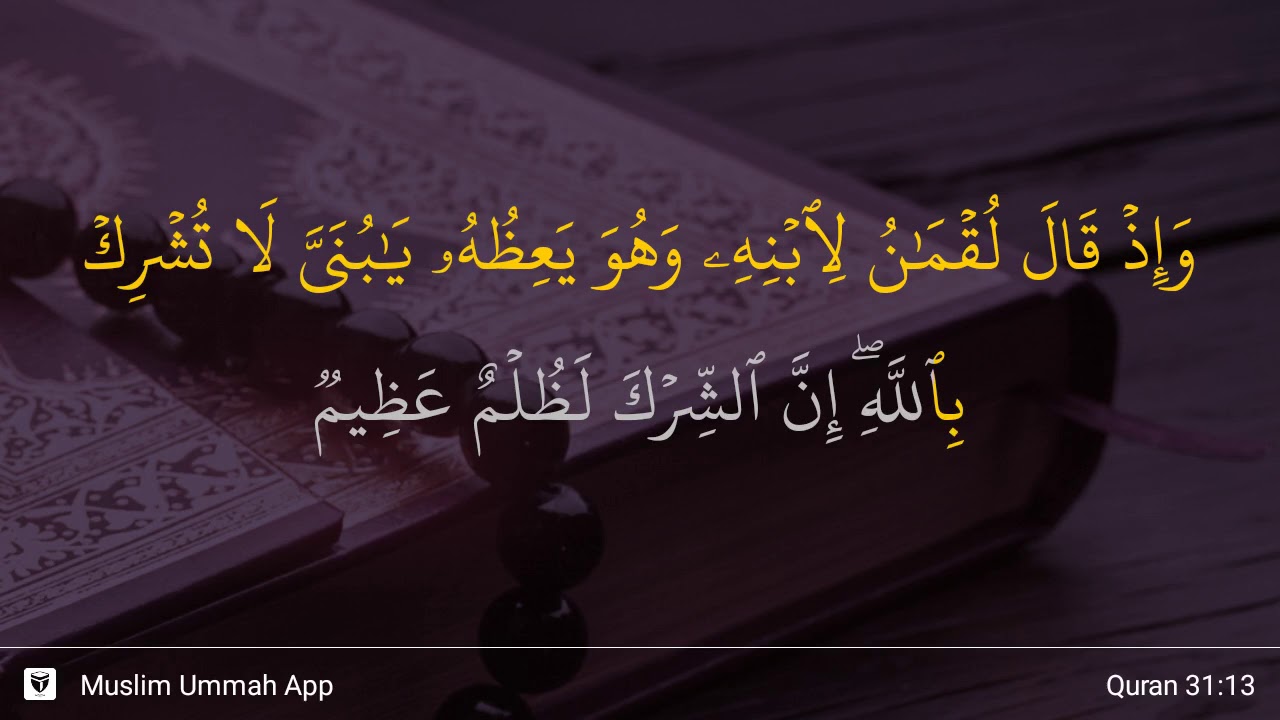 وَإِذۡ قَالَ لُقۡمَـٰنُ لِٱبۡنِهِۦ وَهُوَ يَعِظُهُۥ يَـٰبُنَىَّ لَا تُشۡرِكۡ
بِٱللَّهِ‌ۖ إِنَّ ٱلشِّرۡكَ لَظُلۡمٌ عَظِيمٌ
Muslim Ummah App
Quran 31:13